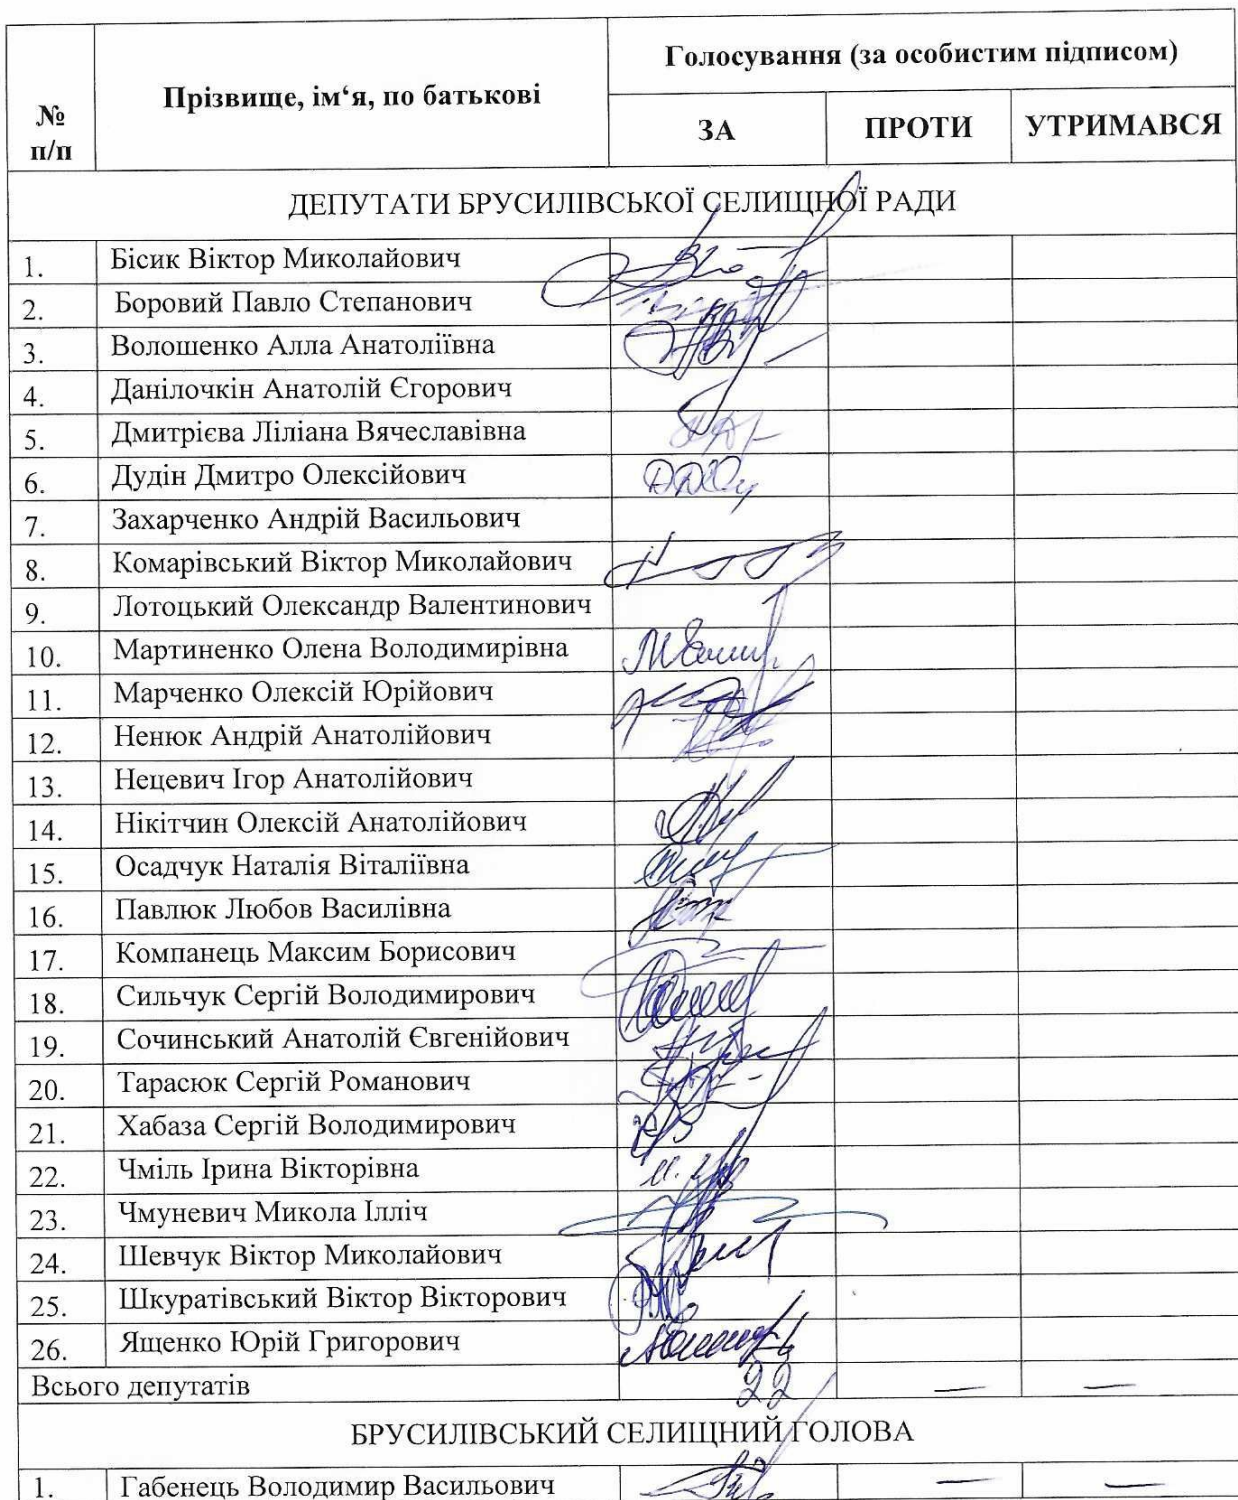 № п/п Прізвище, ім‘я, по батькові Голосування (за особистим підписом)
ЗА ПРОТИ УТРИМАВСЯ
ДЕПУТАТИ БРУСИЛІВСЬКОЇ СЕЛИЩНОЇ РАДИ
1. Бісик Віктор Миколайович
2. Боровий Павло Степанович
3. Волошенко Алла Анатоліївна
4. Данілочкін Анатолій Єгорович
5. Дмитрієва Ліліана Вячеславівна
6. Дудін Дмитро Олексійович
7. Захарченко Андрій Васильович
8. Комарівський Віктор Миколайович
9. Лотоцький Олександр Валентинович
10. Мартиненко Олена Володимирівна
11. Марченко Олексій Юрійович
12. Ненюк Андрій Анатолійович
13. Нецевич Ігор Анатолійович
14. Нікітчин Олексій Анатолійович
15. Осадчук Наталія Віталіївна
16. Павлюк Любов Василівна
17. Компанець Максим Борисович
18. Сильчук Сергій Володимирович
19. Сочинський Анатолій Євгенійович
20. Тарасюк Сергій Романович
21. Хабаза Сергій Володимирович
22. Чміль Ірина Вікторівна
23. Чмуневич Микола Ілліч
24. Шевчук Віктор Миколайович
25. Шкуратівський Віктор Вікторович
26. Ященко Юрій Григорович
Всього депутатів 22 — —
БРУСИЛІВСЬКИЙ СЕЛИЩНИЙ ГОЛОВА
1. Габенець Володимир Васильович — —